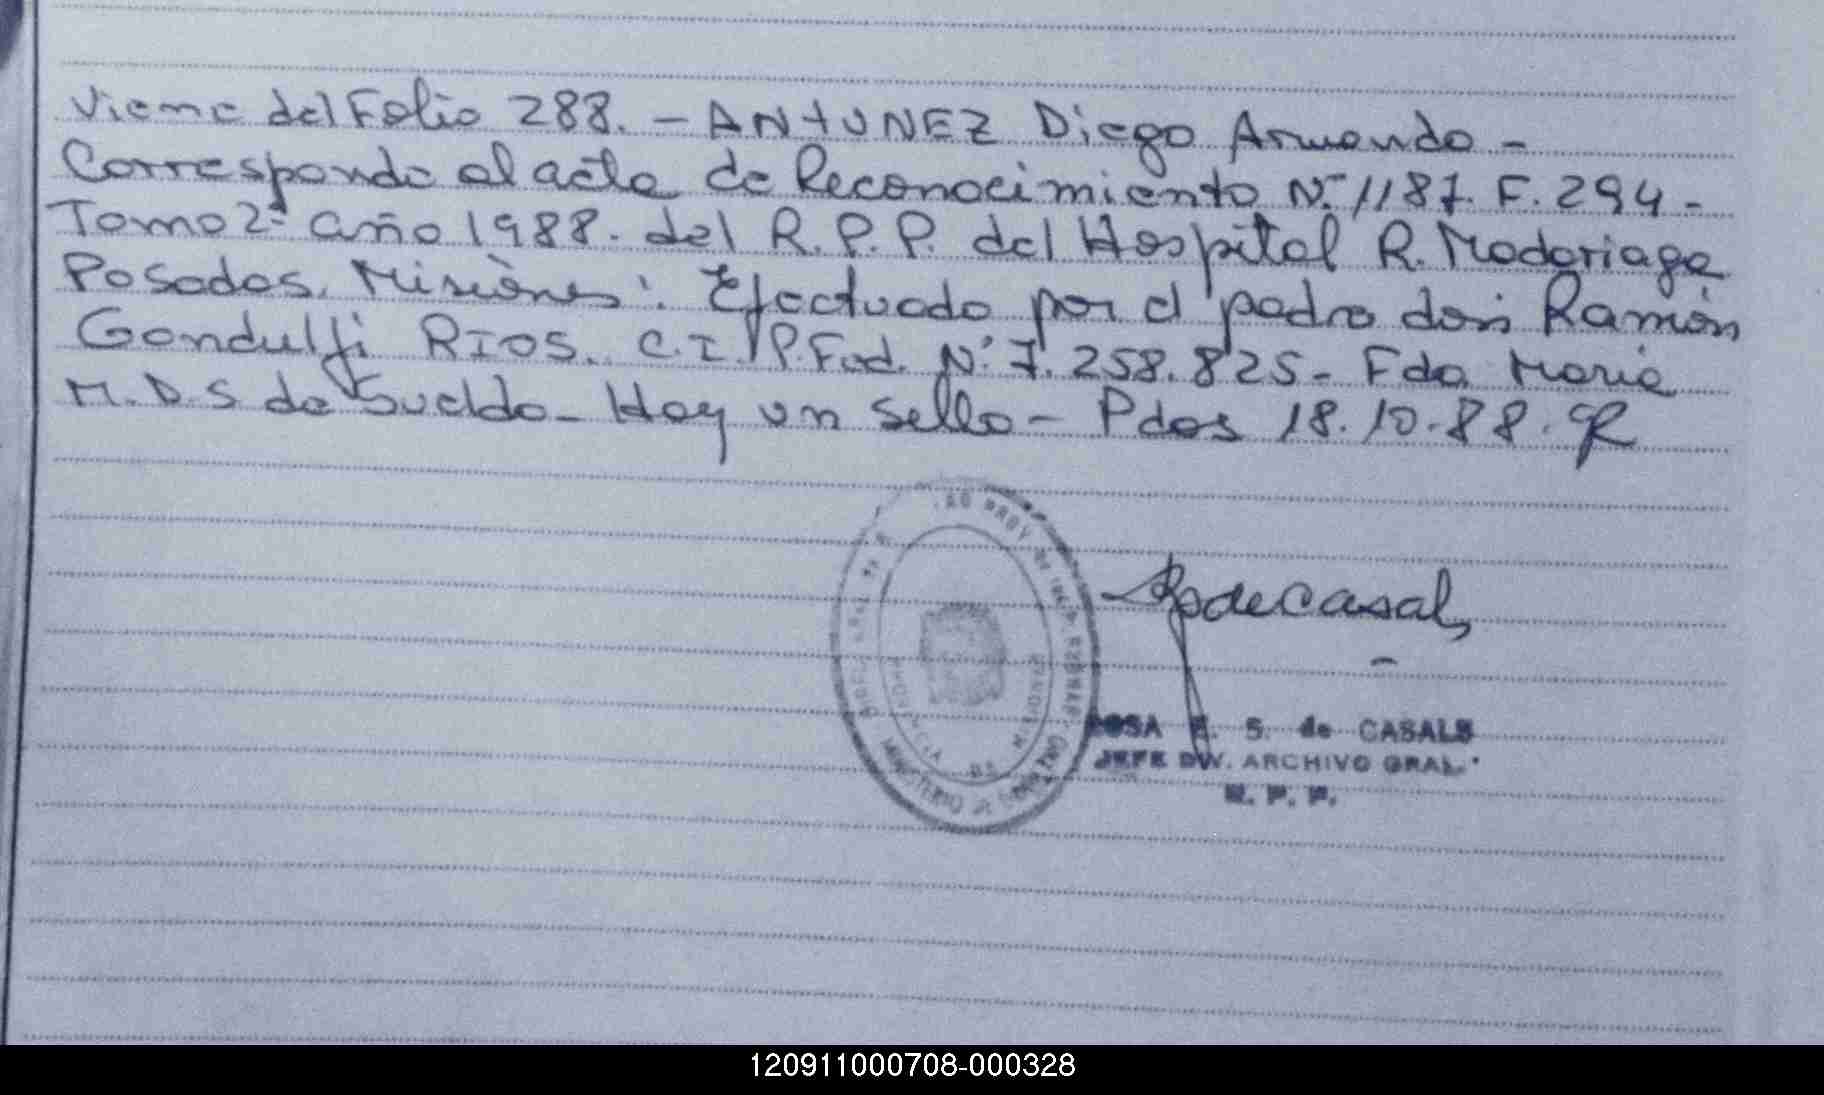 Viene del Folio 288. - ANTUNEZ Diego Armando -
Corresponde al acta de Reconocimiento Nº 1187. F. 294 -
Tomo 2º año 1988. del R.P.P. del Hospital R. Madariaga
Posadas. Misiones: Efectuado por el padre don Ramón
Gondulfi RIOS. C.I. P. Fed. Nº 7.258.825 - Fdo. Maria
M.D.S de Sueldo - Hay un sello - Pdas 18.10.88.
ROSA E. S. de CASALS
JEFE DIV. ARCHIVO GRAL.
R. P. P.
MINISTERIO DE
120911000708-000328